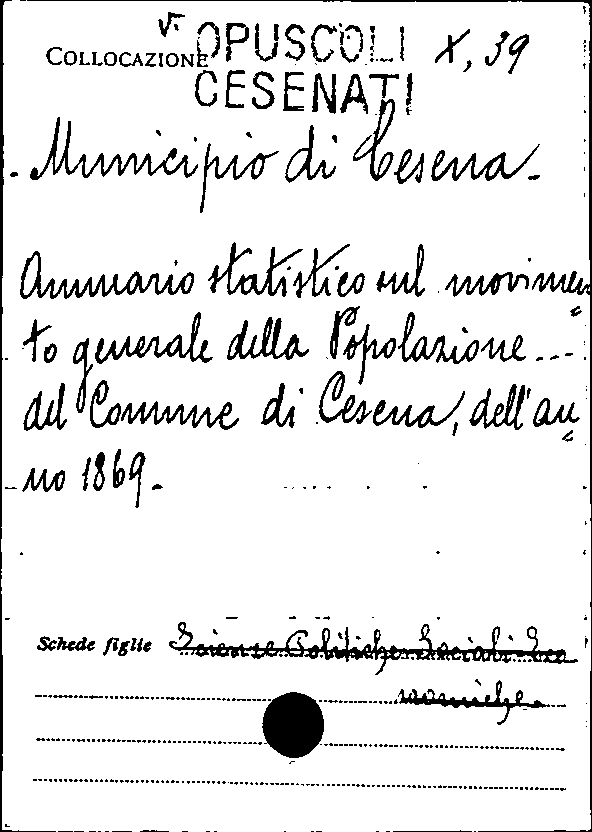 v.
COLLOCAZIONE OPUSCOLI X, 39
CESENATI
. Municipio di Cesena.
Annuario statistico sul movimen
to generale della Popolazione ...
del Comune di Cesena, dell'an
no 1869.
Schede figlie Scienze Politiche Sociali Eco
nomiche.